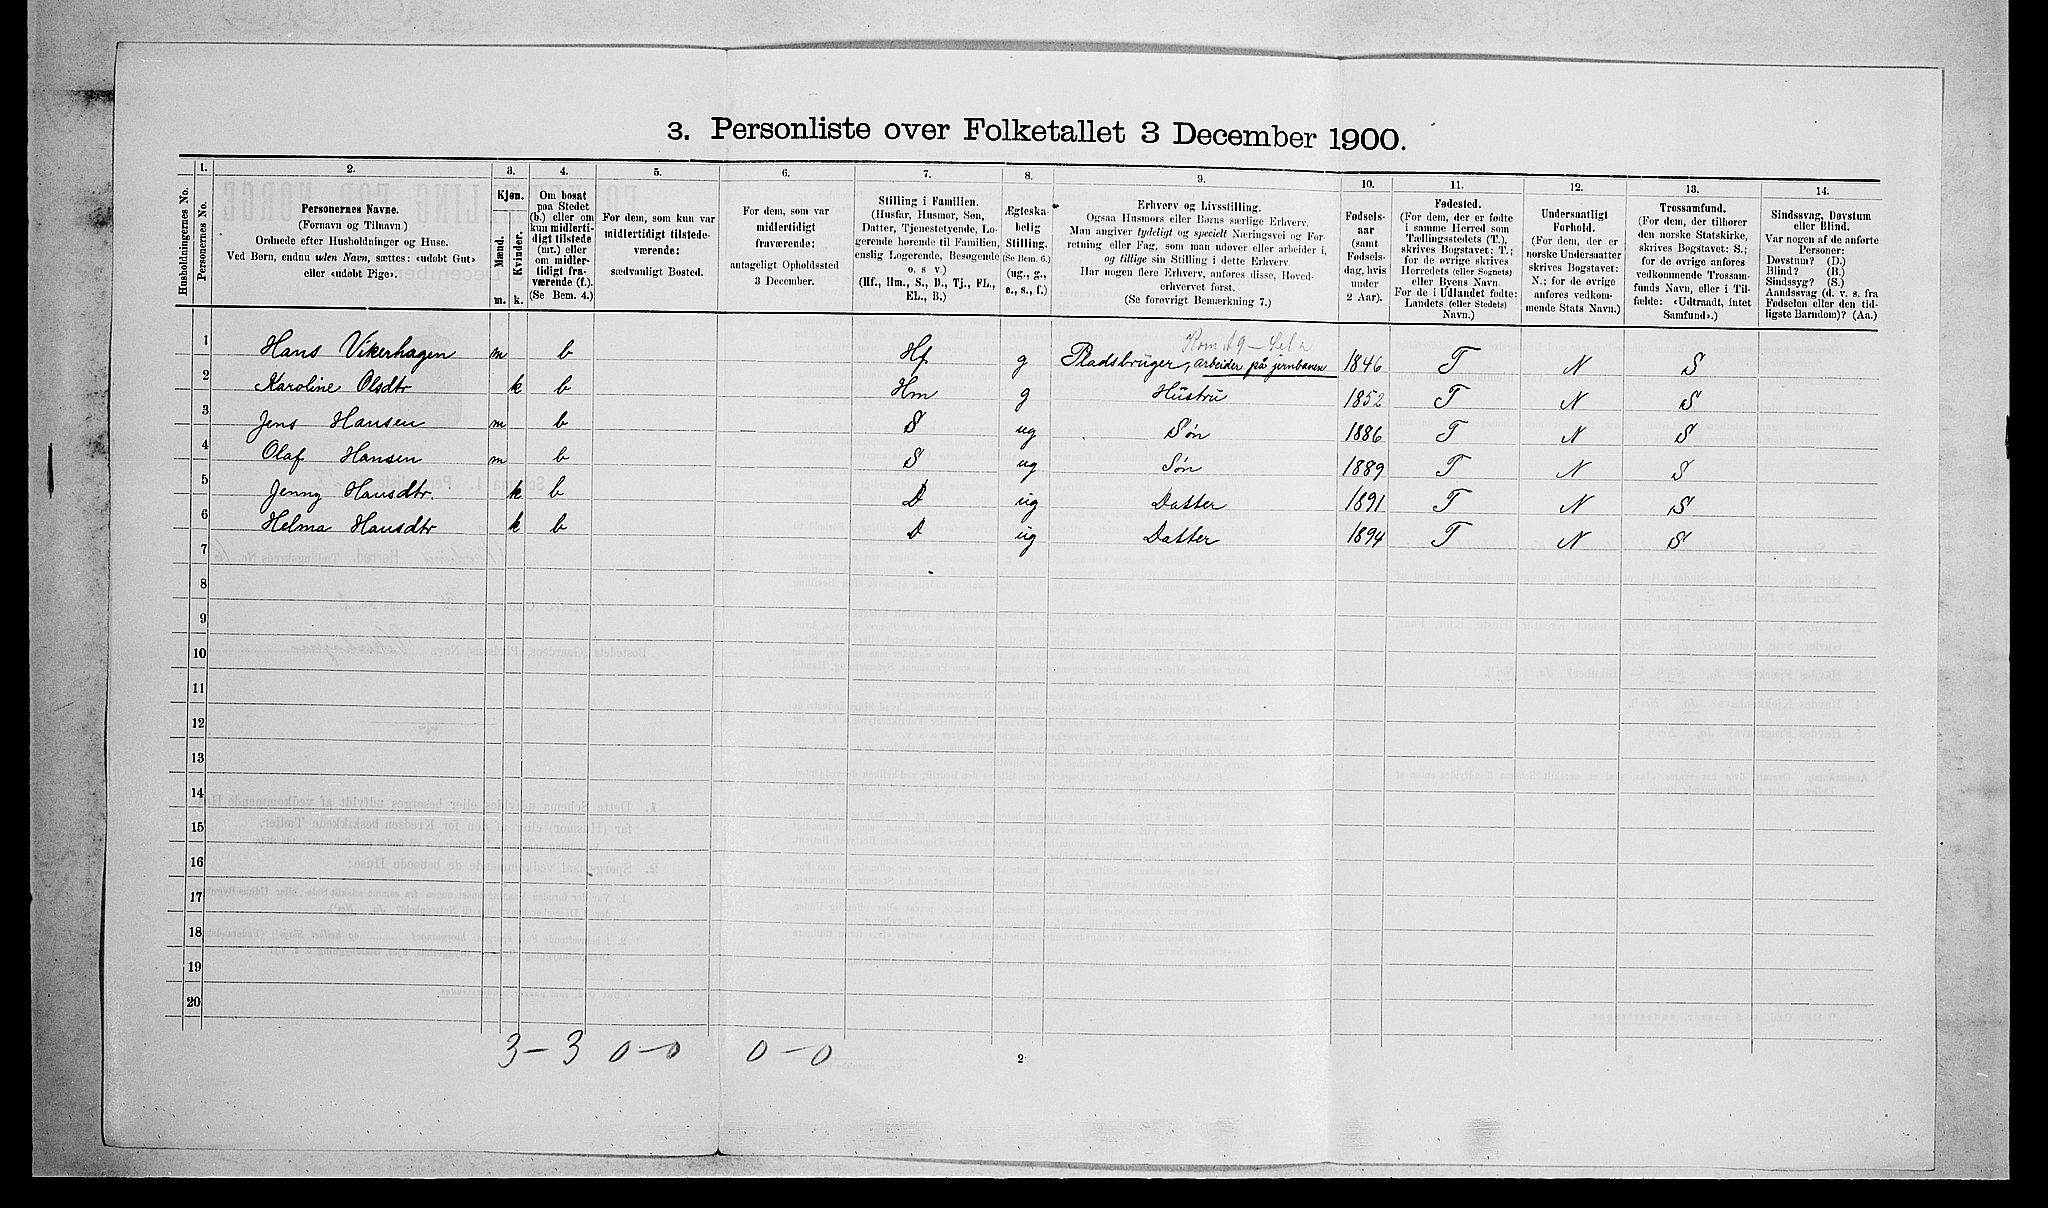 3. Personliste over Folketallet 3 December 1900.
1. 2. 3. 4. 5. 6. 7. 8. 9. 10. 11. 12. 13. 14.
Husholdningernes No.
Personernes No.
Personernes Navne.
(Fornavn og Tilnavn.)
Ordnede efter Husholdninger og Huse.
Ved Børn, endnu uden Navn, sættes: «udøbt Gut»
eller «udøbt Pige».
Kjøn.
Mænd.
Kvinder.
m. k.
Om bosat
paa Stedet
(b.) eller om
kun midlerti-
digt tilstede
(mt.) eller
om midler-
tidigt fra-
værende (f.).
(Se Bem. 4.)
For dem, som kun var
midlertidigt tilstede-
værende:
sædvanligt Bosted.
For dem, som var
midlertidigt
fraværende:
antageligt Opholdssted
3 December.
Stilling i Familien.
(Husfar, Husmor, Søn,
Datter, Tjenestetyende, Lo-
gerende hørende til Familien,
enslig Logerende, Besøgende
o. s v.)
(Hf., Hm., S., D., Tj., FL.,
EL., B.)
Ægteska-
belig
Stilling.
(Se Bem. 6.)
(ug., g.,
e., s., f.)
Erhverv og Livsstilling.
Ogsaa Husmors eller Børns særlige Erhverv.
Man angiver tydeligt og specielt Næringsvei og For-
retning eller Fag, som man udøver eller arbeider i,
og tillige sin Stilling i dette Erhverv.
Har nogen flere Erhverv, anføres disse, Hoved-
erhvervet først.
(Se forøvrigt Bemerkning 7.)
Fødsels-
aar
(samt
Fødsels-
dag, hvis
under
2 Aar).
Fødested.
(For dem, der er fødte
i samme Herred som
Tællingsstedets (T.),
skrives Bogstavet: T.;
for de øvrige skrives
Herredets (eller Sognets)
eller Byens Navn.
For de i Udlandet fødte:
Landets (eller Stedets)
Navn.)
Undersaatligt
Forhold.
(For dem, der er
norske Undersaatter
skrives Bogstavet:
N.; for de øvrige
anføres vedkom-
mende Stats Navn.)
Trossamfund.
(For dem, der tilhører
den norske Statskirke,
skrives Bogstavet: S.;
for de øvrige anføres
vedkommende Trossam-
funds Navn, eller i Til-
fælde: «Udtraadt, intet
Samfund».)
Sindssvag, Døvstum
eller Blind.
Var nogen af de anførte
Personer:
Døvstum? (D.)
Blind? (B.)
Sindssyg? (S.)
Aandssvag (d. v. s. fra
Fødselen eller den tid-
ligste Barndom)? (Aa.)
1 Hans Vikerhagen m b Hf g Pladsbruger, arbeider på jernbanen 1846 T N S
2 Karoline Olsdtr k b Hm g Hustru 1852 T N S
3 Jens Hansen m b S ug Søn 1886 T N S
4 Olaf Hansen m b S ug Søn 1889 T N S
5 Jenny Hansdtr. k b D ug Datter 1891 T N S
6 Helma Hansdtr k b D ug Datter 1894 T N S
7
8
9
10
11
12
13
14
15
16
17
18
19
20
3 – 3 0 – 0 0 – 0
2